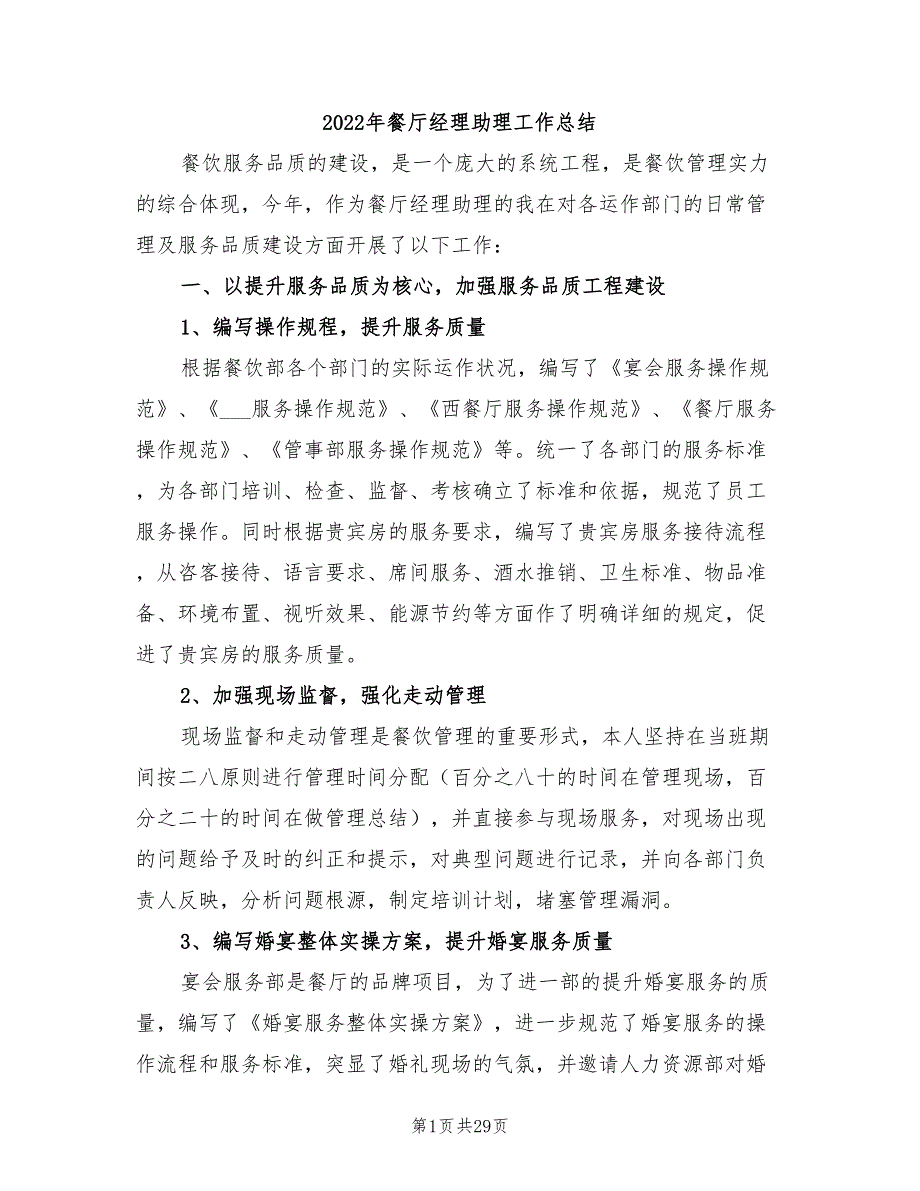 2022年餐厅经理助理工作总结
餐饮服务品质的建设，是一个庞大的系统工程，是餐饮管理实力
的综合体现，今年，作为餐厅经理助理的我在对各运作部门的日常管
理及服务品质建设方面开展了以下工作：
一、以提升服务品质为核心，加强服务品质工程建设
1、编写操作规程，提升服务质量
根据餐饮部各个部门的实际运作状况，编写了《宴会服务操作规
范》、《___服务操作规范》、《西餐厅服务操作规范》、《餐厅服务
操作规范》、《管事部服务操作规范》等。统一了各部门的服务标准
，为各部门培训、检查、监督、考核确立了标准和依据，规范了员工
服务操作。同时根据贵宾房的服务要求，编写了贵宾房服务接待流程
，从咨客接待、语言要求、席间服务、酒水推销、卫生标准、物品准
备、环境布置、视听效果、能源节约等方面作了明确详细的规定，促
进了贵宾房的服务质量。
2、加强现场监督，强化走动管理
现场监督和走动管理是餐饮管理的重要形式，本人坚持在当班期
间按二八原则进行管理时间分配（百分之八十的时间在管理现场，百
分之二十的时间在做管理总结），并直接参与现场服务，对现场出现
的问题给予及时的纠正和提示，对典型问题进行记录，并向各部门负
责人反映，分析问题根源，制定培训计划，堵塞管理漏洞。
3、编写婚宴整体实操方案，提升婚宴服务质量
宴会服务部是餐厅的品牌项目，为了进一部的提升婚宴服务的质
量，编写了《婚宴服务整体实操方案》，进一步规范了婚宴服务的操
作流程和服务标准，突显了婚礼现场的气氛，并邀请人力资源部对婚
第1页共29页